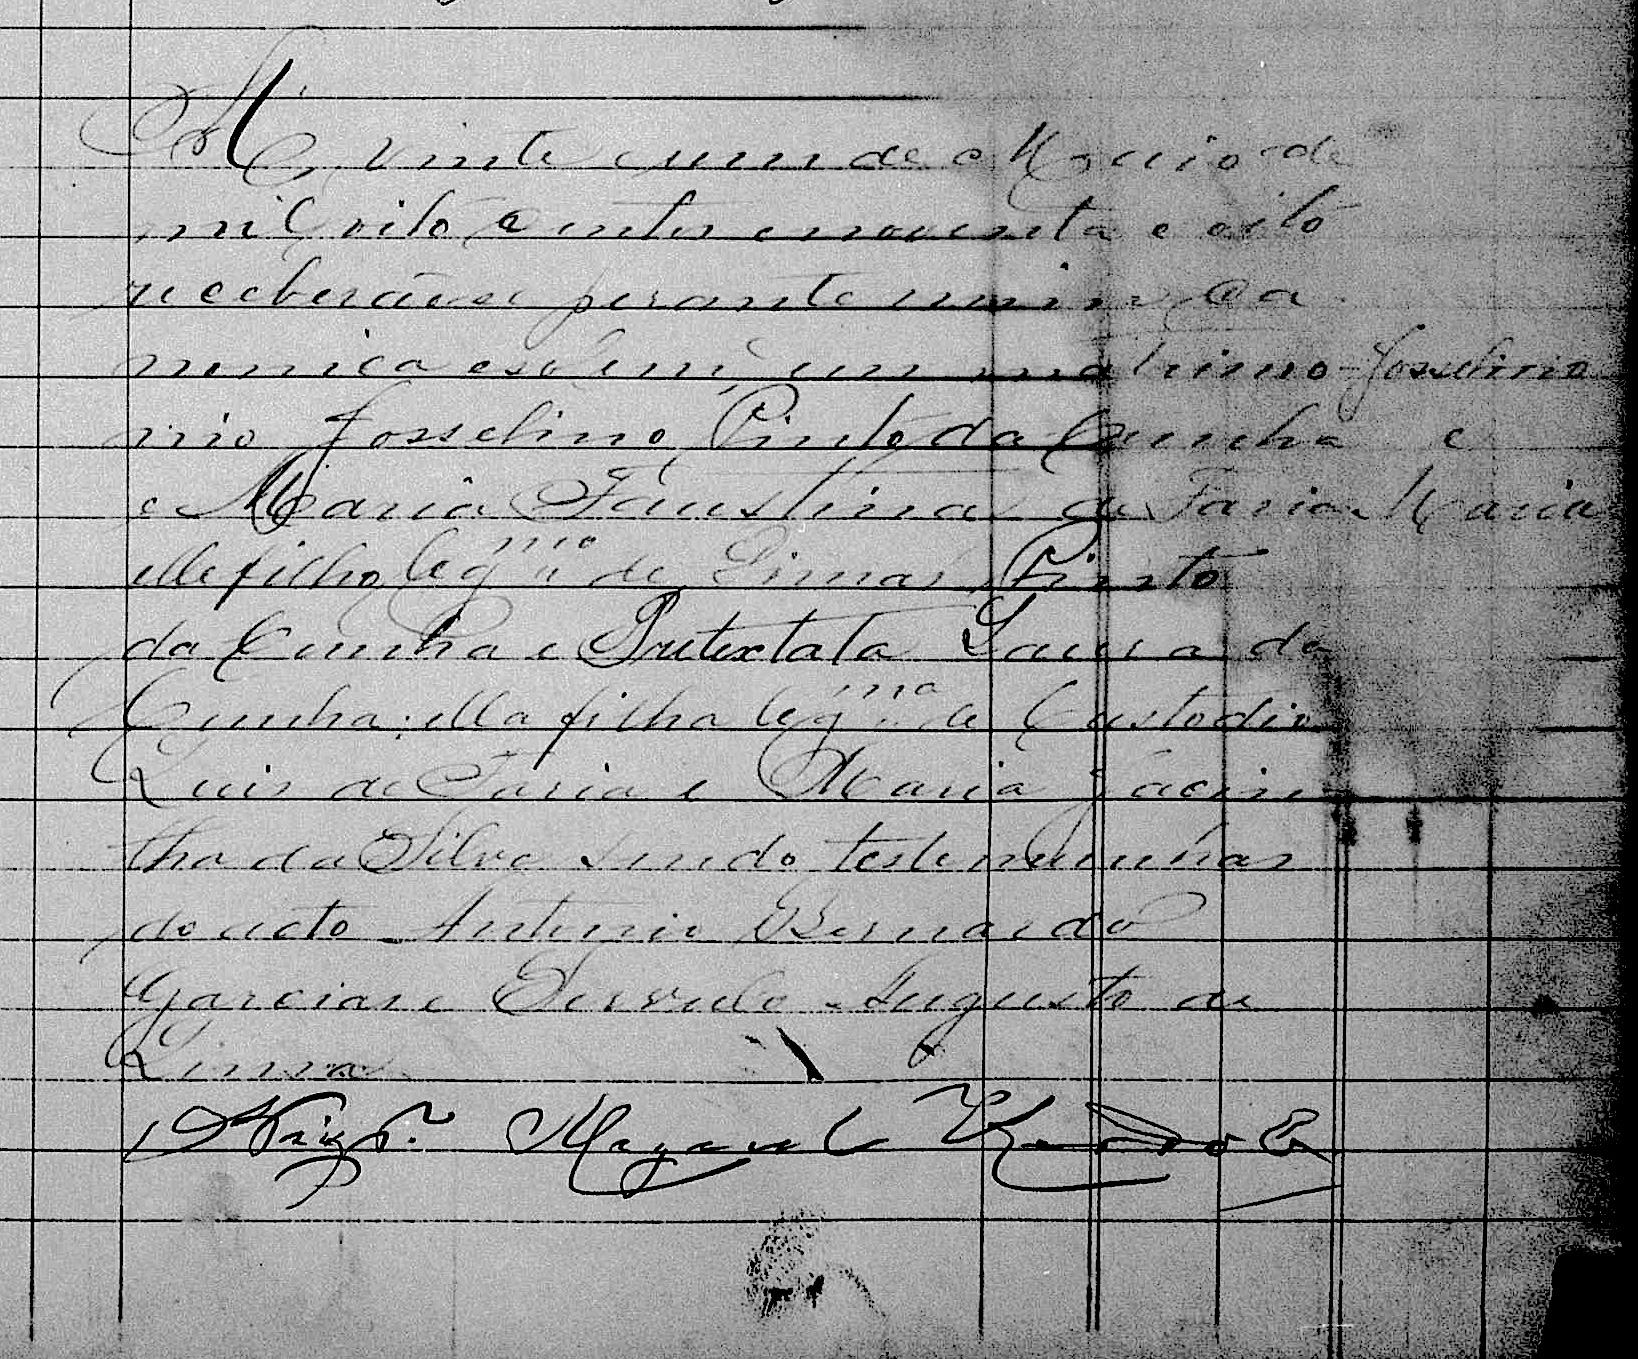 A vinte e um de Maio de
mil oito centos e noventa e oito
receberão se perante mim Ca
nonica e so em um matrimo- Josselino
nio Josselino Pinto da Cunha e
e Maria Faustina de Faria Maria
elle filho legmo de Simas Pinto
da Cunha e Pretextata Laura da
Cunha: ella filha legma de Custodio
Luis de Faria e Maria Jacin
tha da Silva sendo testemunhas
do acto Antonio Bernardo
Garcia e Servulo Augusto de
Lima
O Vigr.